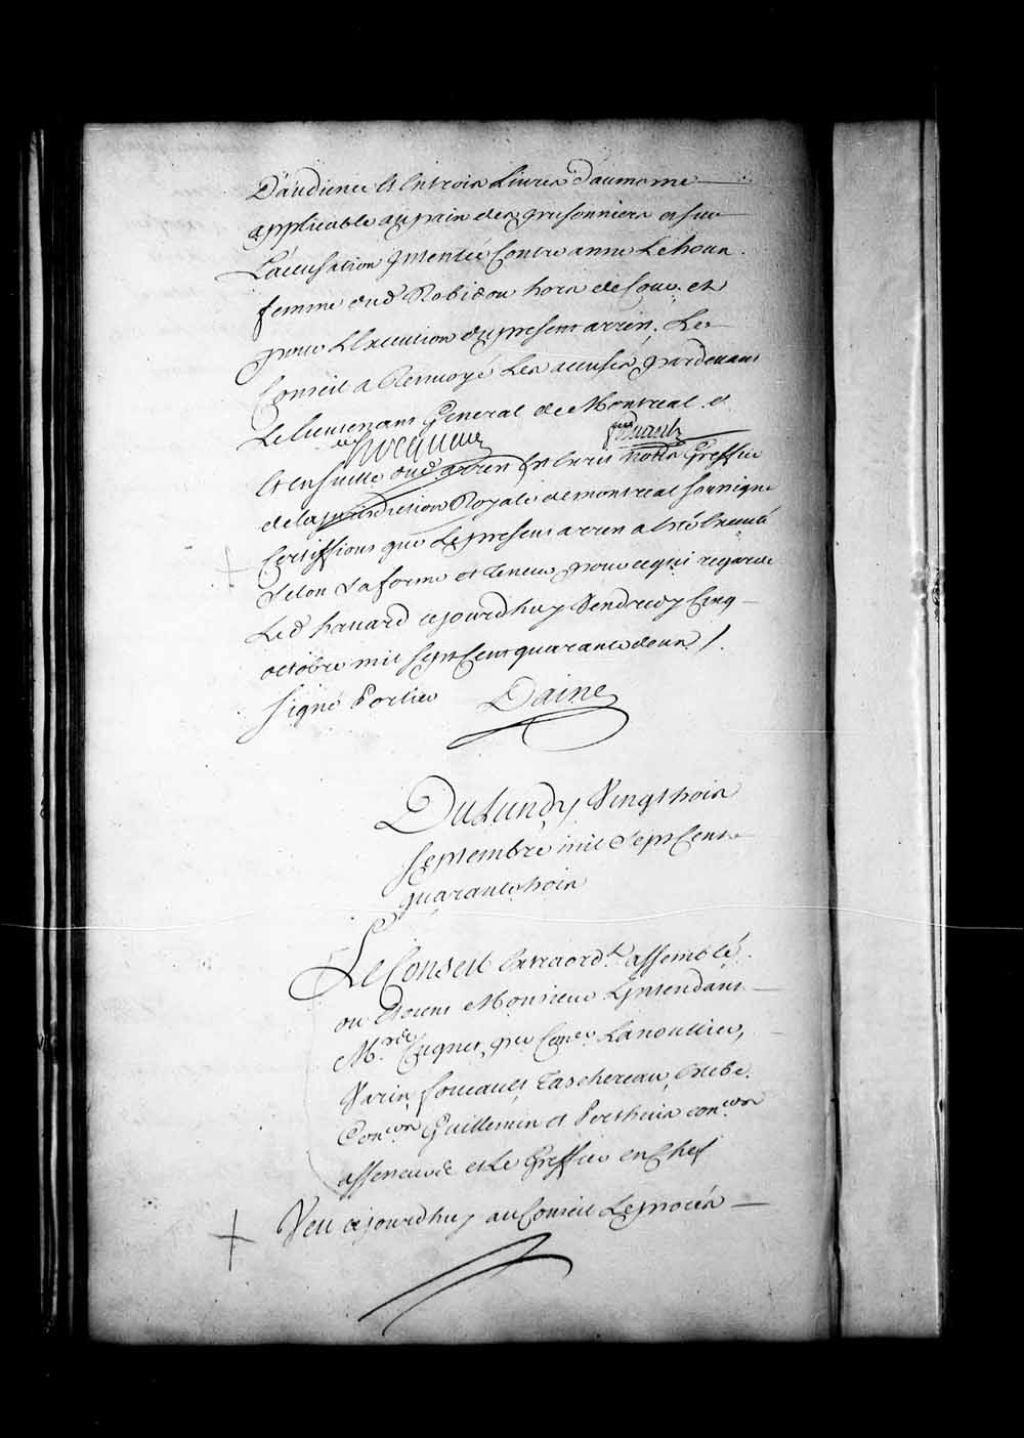 D'audience et en trois Livres d'aumosne
applicable au pain des prisonniers et sur
L'accusation Intentée Contre anne Lehoux
femme dud Robidou hors de Cour. et
pour L'Execution du present arrest, Le
Conseil a Renvoyé Les accusés pardevant
Le lieutenant General de Montreal. et
hocquart
Et ensuitte dud. arrest Est Ecrit nous Greffier
de la jurisdiction Royale de montreal soussigné
Certiffions que Le present arrest a Eté Executé
Selon La forme et teneur pour ce qui regarde
Led havard cejourdhuy Vendredy Cinq
octobre mil Sept Cent quarante deux /.
Signé Portier Daine
Du Lundy Vingt trois
Septembre mil Sept Cent
quarante trois
Le Conseil Extraord.t assemblé
ou Etoient Monsieur L'Intendant
M.rs de Cugnet, pr Con.er Lanoullier,
Varin, foucault Taschereau, Estebe
Con.ers Guillemin et Perthuis con.ers
assesseurs et Le Greffier en Chef
Veu cejourdhuy au Conseil Le procés